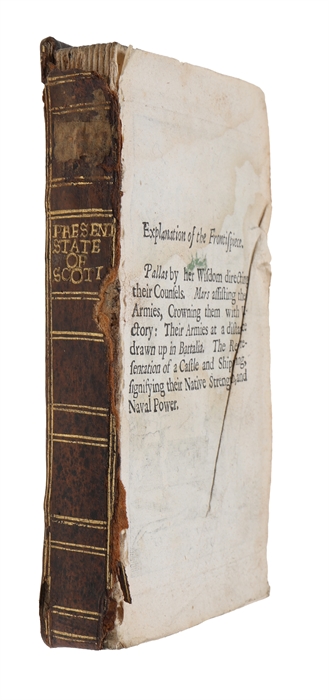 PRESENT
STATE
OF
SCOTL
Explanation of the Frontiſpiece.
Pallas by her Wiſdom directin
their Counſels. Mars aſſiſting the
Armies, Crowning them with
ctory: Their Armies at a
drawn up in Battalia. The
ſentation of a Caſtle and Shipping,
ſignifying their Native Strength and
Naval Power.